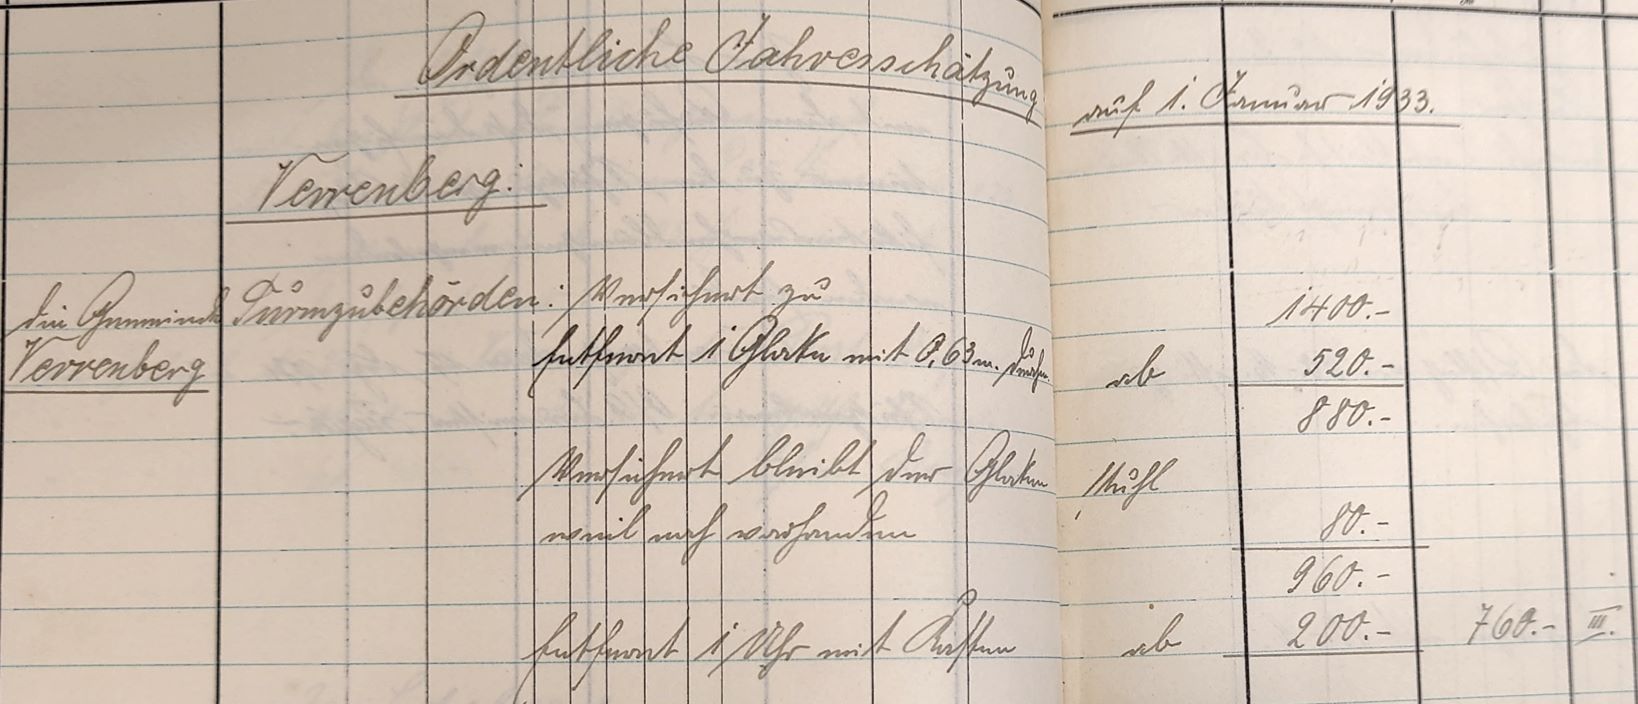 Ordentliche Jahresschätzung auf 1. Januar 1933.
Verrenberg:
die Gemeinde Turmzubehörden: Versichert zu 1400.-
Verrenberg Entfernt 1 Glocke mit 0,63 m. Durchm. ab 520.-
880.-
Versichert bleibt der Glocken stuhl
weil noch vorhanden 80.-
960.-
Entfernt 1 Uhr mit Kasten ab 200.- 760.- III.